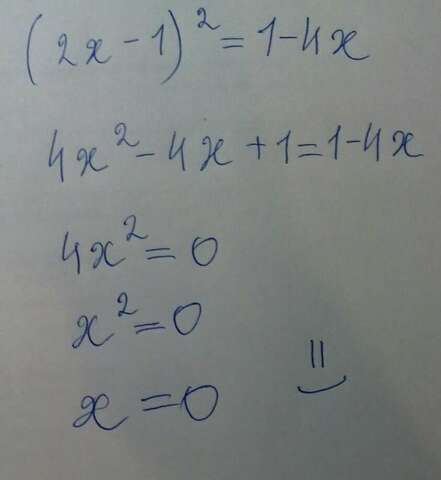 (2x-1)²=1-4x
4x²-4x+1=1-4x
4x²=0
x²=0
x=0